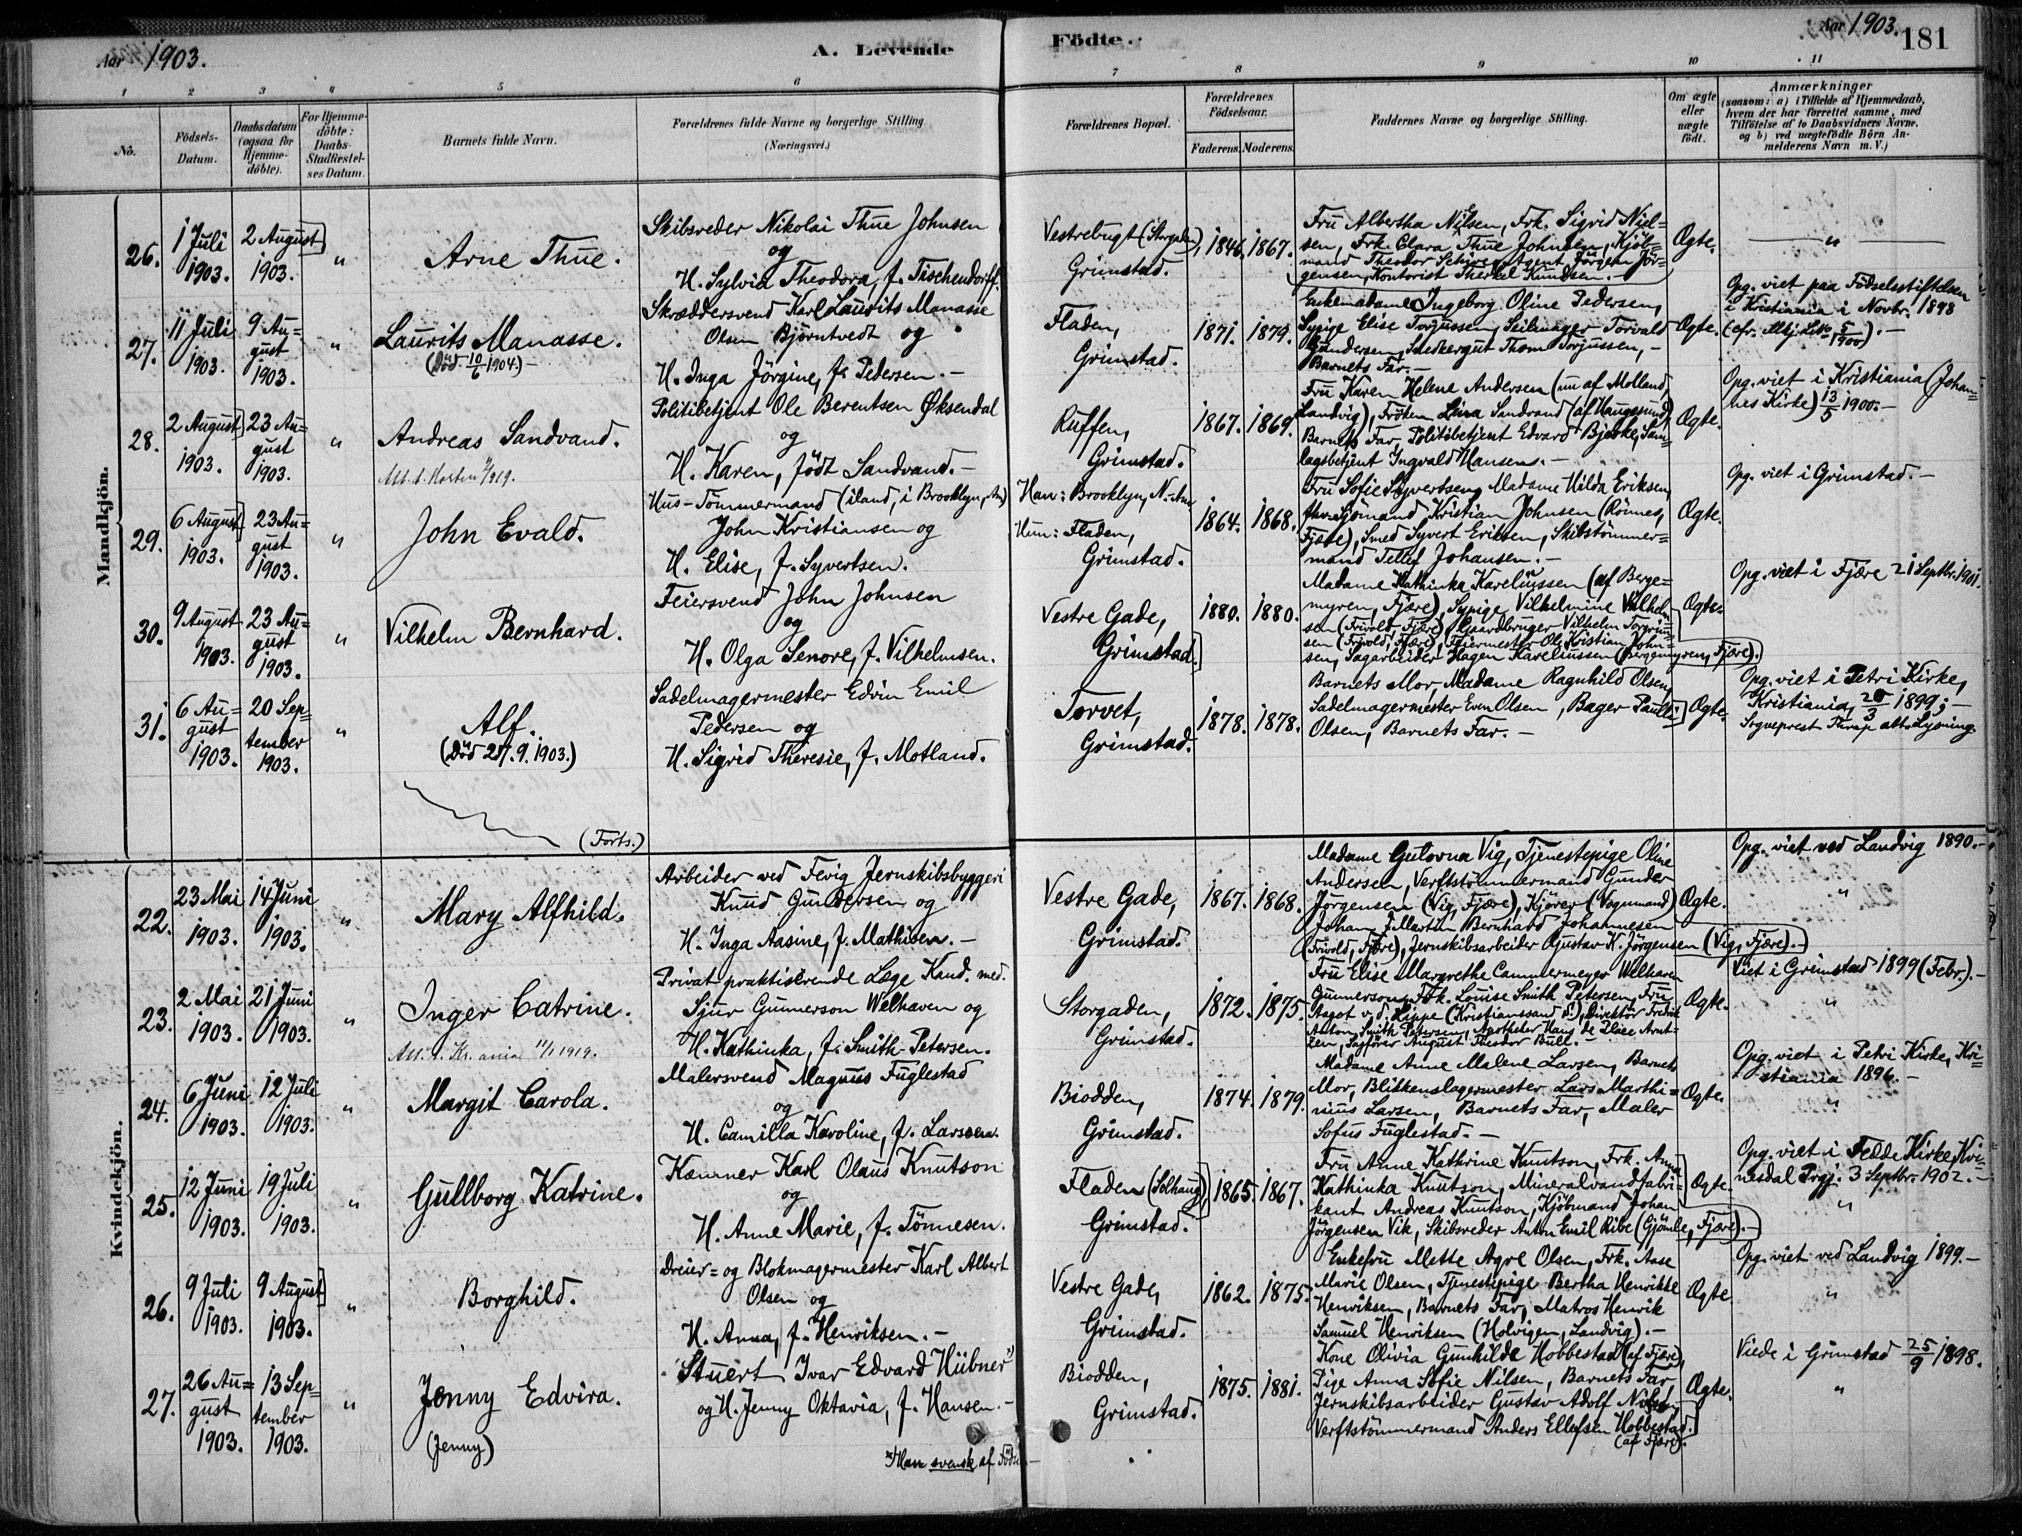 Aar 1903.
A. Levende
Födte.
Aar 1903.
181
1
2
3
4
5
6
7
8
9
10
11
No.
Födsels-
Datum.
Daabsdatum
(ogsaa for
Hjemme-
döbte).
For Hjemme-
döbte:
Daabs-
Stadfæstel-
ses Datum.
Barnets fulde Navn.
Forældrenes fulde Navne og borgerlige Stilling.
(Næringsvei.)
Forældrenes Bopæl.
Forældrenes
Födselsaar.
Faderens.
Moderens.
Faddernes Navne og borgerlige Stilling.
Om ægte
eller
uægte
födt.
Anmærkninger
(saasom: a) i Tilfælde af Hjemmedaab,
hvem der har forrettet samme, med
Tilföielse af to Daabsvidners Navne,
og b) ved uægtefödte Börn An-
melderens Navn m. V.)
Mandkjön.
26.
1 Juli
1903.
2 August
1903.
"
Arne Thue.
Skibsreder Nikolai Thue Johnsen
og
H. Sylvia Theodora, f. Tischendorff.
Vestrebugt (Storgaden),
Grimstad.
1846.
1867.
Fru Albertha Nielsen, Frk. Sigrid Niel-
sen, Frk. Clara Thue Johnsen, Kjöb-
mand Theodor Schiren, Agent Jörgen Jör-
gensen, Kontorist Therkel Knudsen.-
Ægte.
"
27.
11 Juli
1903.
9 Au-
gust
1903.
"
Laurits Manasse.
(Död 10/6 1904.)-
Skræddersvend Karl Laurits Manasse
Olsen Bjorntvedt og
H. Inga Jörgine, f. Pedersen.-
Fladen,
Grimstad.
1871.
1879.
Enkemadame Ingeborg Oline Pedersen,
Sypige Elise Torjussen, Seilmager Torvald
Gundersen, Snedkergut Thom Torjussen,-
Barnets Far.-
Ægte.
Opg. viet paa Födselsstiftelsen
i Kristiania i Novbr. 1898
5/1900).-
28.
2 August
1903.
23 Au-
gust
1903.
"
Andreas Sandvand.
1919.
Politibetjent Ole Berentsen Øksendal
og
H. Karen, född Sandvand.-
Ruffen,
Grimstad.
1867.
1869.
Fru Karen Helene Andersen (nu af Molland,
Landvig), Fröken Lina Sandvand (af Haugesund),
Barnets Far, Politibetjent Edvard Bjerke, Sam-
lagsbetjent Ingvald Hansens.-
Ægte.
Opg. viet i Kristiania (Johan-
nes Kirke) 13/5 1900.-
29.
6 August
1903.
23 Au-
gust
1903.
"
John Evald.
Hus-Tömmermand (iland, i Brooklyn, Am)
John Kristiansen og
H. Elise, f. Syvertsen.
Han: Brooklyn, N.-Am.
Hun: Fladen,
Grimstad.
1864.
1868.
Fru Sofie Syvertsen, Madame Hilda Eriksen,
fhv. Sjömand Kristian Johnsen (Rönnes,
Fjære), Smed Syvert Eriksen, Skibstömmer-
mand Tellef Johansen.-
Ægte.
Opg. viet i Grimstad.-
30.
9 August
1903.
23 Au-
gust
1903.
"
Vilhelm Bernhard.
Feiersvend John Johnsen
og
H. Olga Lenore, f. Vilhelmsen.
Vestre Gade,
Grimstad.
1880.
1880.
Madame Kathinka Kareliussen (af Berge-
myren, Fjære), Sypige Vilhelmine Vilhelm-
sen (Frivold, Fjære), Gaardbruger Vilhelm
sen (Frivold, Fjære), Feiermester Ole Kristian John-
sen, Sagarbeider Hagen Kareliussen (Bergemyren, Fjære).
Ægte.
Opg. viet i Fjære 21 Septbr. 1901.
31.
6 Au-
gust
1903.
20 Sep-
tember
1903.
"
Alf.
(Död 27.9.1903.)
Sadelmagermester Edvin Emil
Pedersen og
H. Sigrid Theresie, f. Motland.
Torvet,
Grimstad.
1878.
1878.
Barnets Mor, Madame Ragnhild Olsen,
Sadelmagermester Even Olsen, Bager Paulli
Olsen, Barnets Far.-
Ægte.
Opg. viet i Petri Kirke,
Kristiania, 20/3 1899;-
Sogneprest Thrap att. Lysning.
(Forts.)
Kvindekjön.
22.
23 Mai
1903.
14 Juni
1903.
"
Mary Alfhild.
Arbeider ved Fevig Jernskibsbyggeri
Knud Gundersen og
H. Inga Aasine, f. Mathisen.-
Vestre Gade,
Grimstad.
1867.
1868.
Madame Gulovna Vig, Tjenestepige Oline
Andersen, Verftstömmermand Gunder
Jörgensen (Vig, Fjære), Kjörer (Vognmand)
Johan Martin Bernhard Johannesen
(Frivold, Fjære), Jernskibsarbeider Gustav K. Jörgensen (Vig, Fjære).-
Ægte.
Opg. viet ved Landvig 1890.-
"
23.
2 Mai
1903.
21 Juni
1903.
"
Inger Catrine.
Att. t. Kr.ania 11/1 1919.
Privat praktiserende Læge Kand. med.
Sjur Gunnerson Welhaven og
H. Kathinka, f. Smith-Petersen.
Storgaden,
Grimstad.
1872.
1875.
Fru Elise Margrethe Cammermeyer Welhaven
Gunnerson, Frk. Louise Smith Petersen, Fru
Aagot v. d. Lippe (Kristianssand S.), Direktör Fredrik
Anton Smith Petersen, Apotheker Hans
zen, Sagförer August Theodor Bull.-
Ægte.
Viet i Grimstad 1899 (Febr.).-
"
24.
6 Juni
1903.
12 Juli
1903.
"
Margit Carola.
Malersvend Magnus Fuglestad
og
H. Camilla Karoline, f. Larssen.
Biodden,
Grimstad.
1874.
1879.
Madame Anne Malene Larsen, Barnets
Mor, Blikkenslagermester Lars Marthi-
nius Larsen, Barnets Far, Maler
Sofus Fuglestad.-
Ægte.
Opg. viet i Petri Kirke, Kri-
stiania 1896.-
"
25.
12 Juni
1903.
19 Juli
1903.
"
Gullborg Katrine.
Kæmner Karl Olaus Knutson
og
H. Anne Marie, f. Tönnesen.
Fladen (Solhaug)
Grimstad.
1865.
1867.
Fru Anne Kathrine Knutson, Frk. Anna
Kathinka Knutson, Mineralvandfabri-
kant Andreas Knutson, Kjöbmand Johan
Jörgensen Vik, Skibsreder Anton Emil Ribe (Gjömle, Fjære).-
Ægte.
Opg. viet i Fedde Kirke, Kvi-
nesdal Prgj. 3 Septbr. 1902.-
"
26.
9 Juli
1903.
9 August
1903.
"
Borghild.
Dreier- og Blokmagermester Karl Albert
Olsen og
H. Anna, f. Henriksen.-
Vestre Gade,
Grimstad.
1862.
1875.
Enkefru Mette Olsen, Frk. Aase
Marie Olsen, Tjenestepige Bertha Henrikke
Henriksen, Barnets Far, Matros Henrik
Samuel Henriksen (Holvigen, Landvig).-
Ægte.
Opg. viet ved Landvig 1899.-
"
27.
26 Au-
gust
1903.
13 Sep-
tember
1903.
"
Jenny Edvira.
(Jenny)
Stuert Ivar Edvard Hübner x)
og H. Jenny Oktavia, f. Hansen.-
x) Han svensk af Föds
Biodden,
Grimstad.
1875.
1881.
Kone Olivia Gunhilde Hobbestad (af Fjære),
Pige Anna Sofie Nilsen, Barnets Far,
Jernskibsarbeider Gustav Adolf Nilsen,
Verftstömmermand Anders Ellefsen Hobbestad
(af Fjære).
Ægte.
Viede i Grimstad 25/9 1898.
"